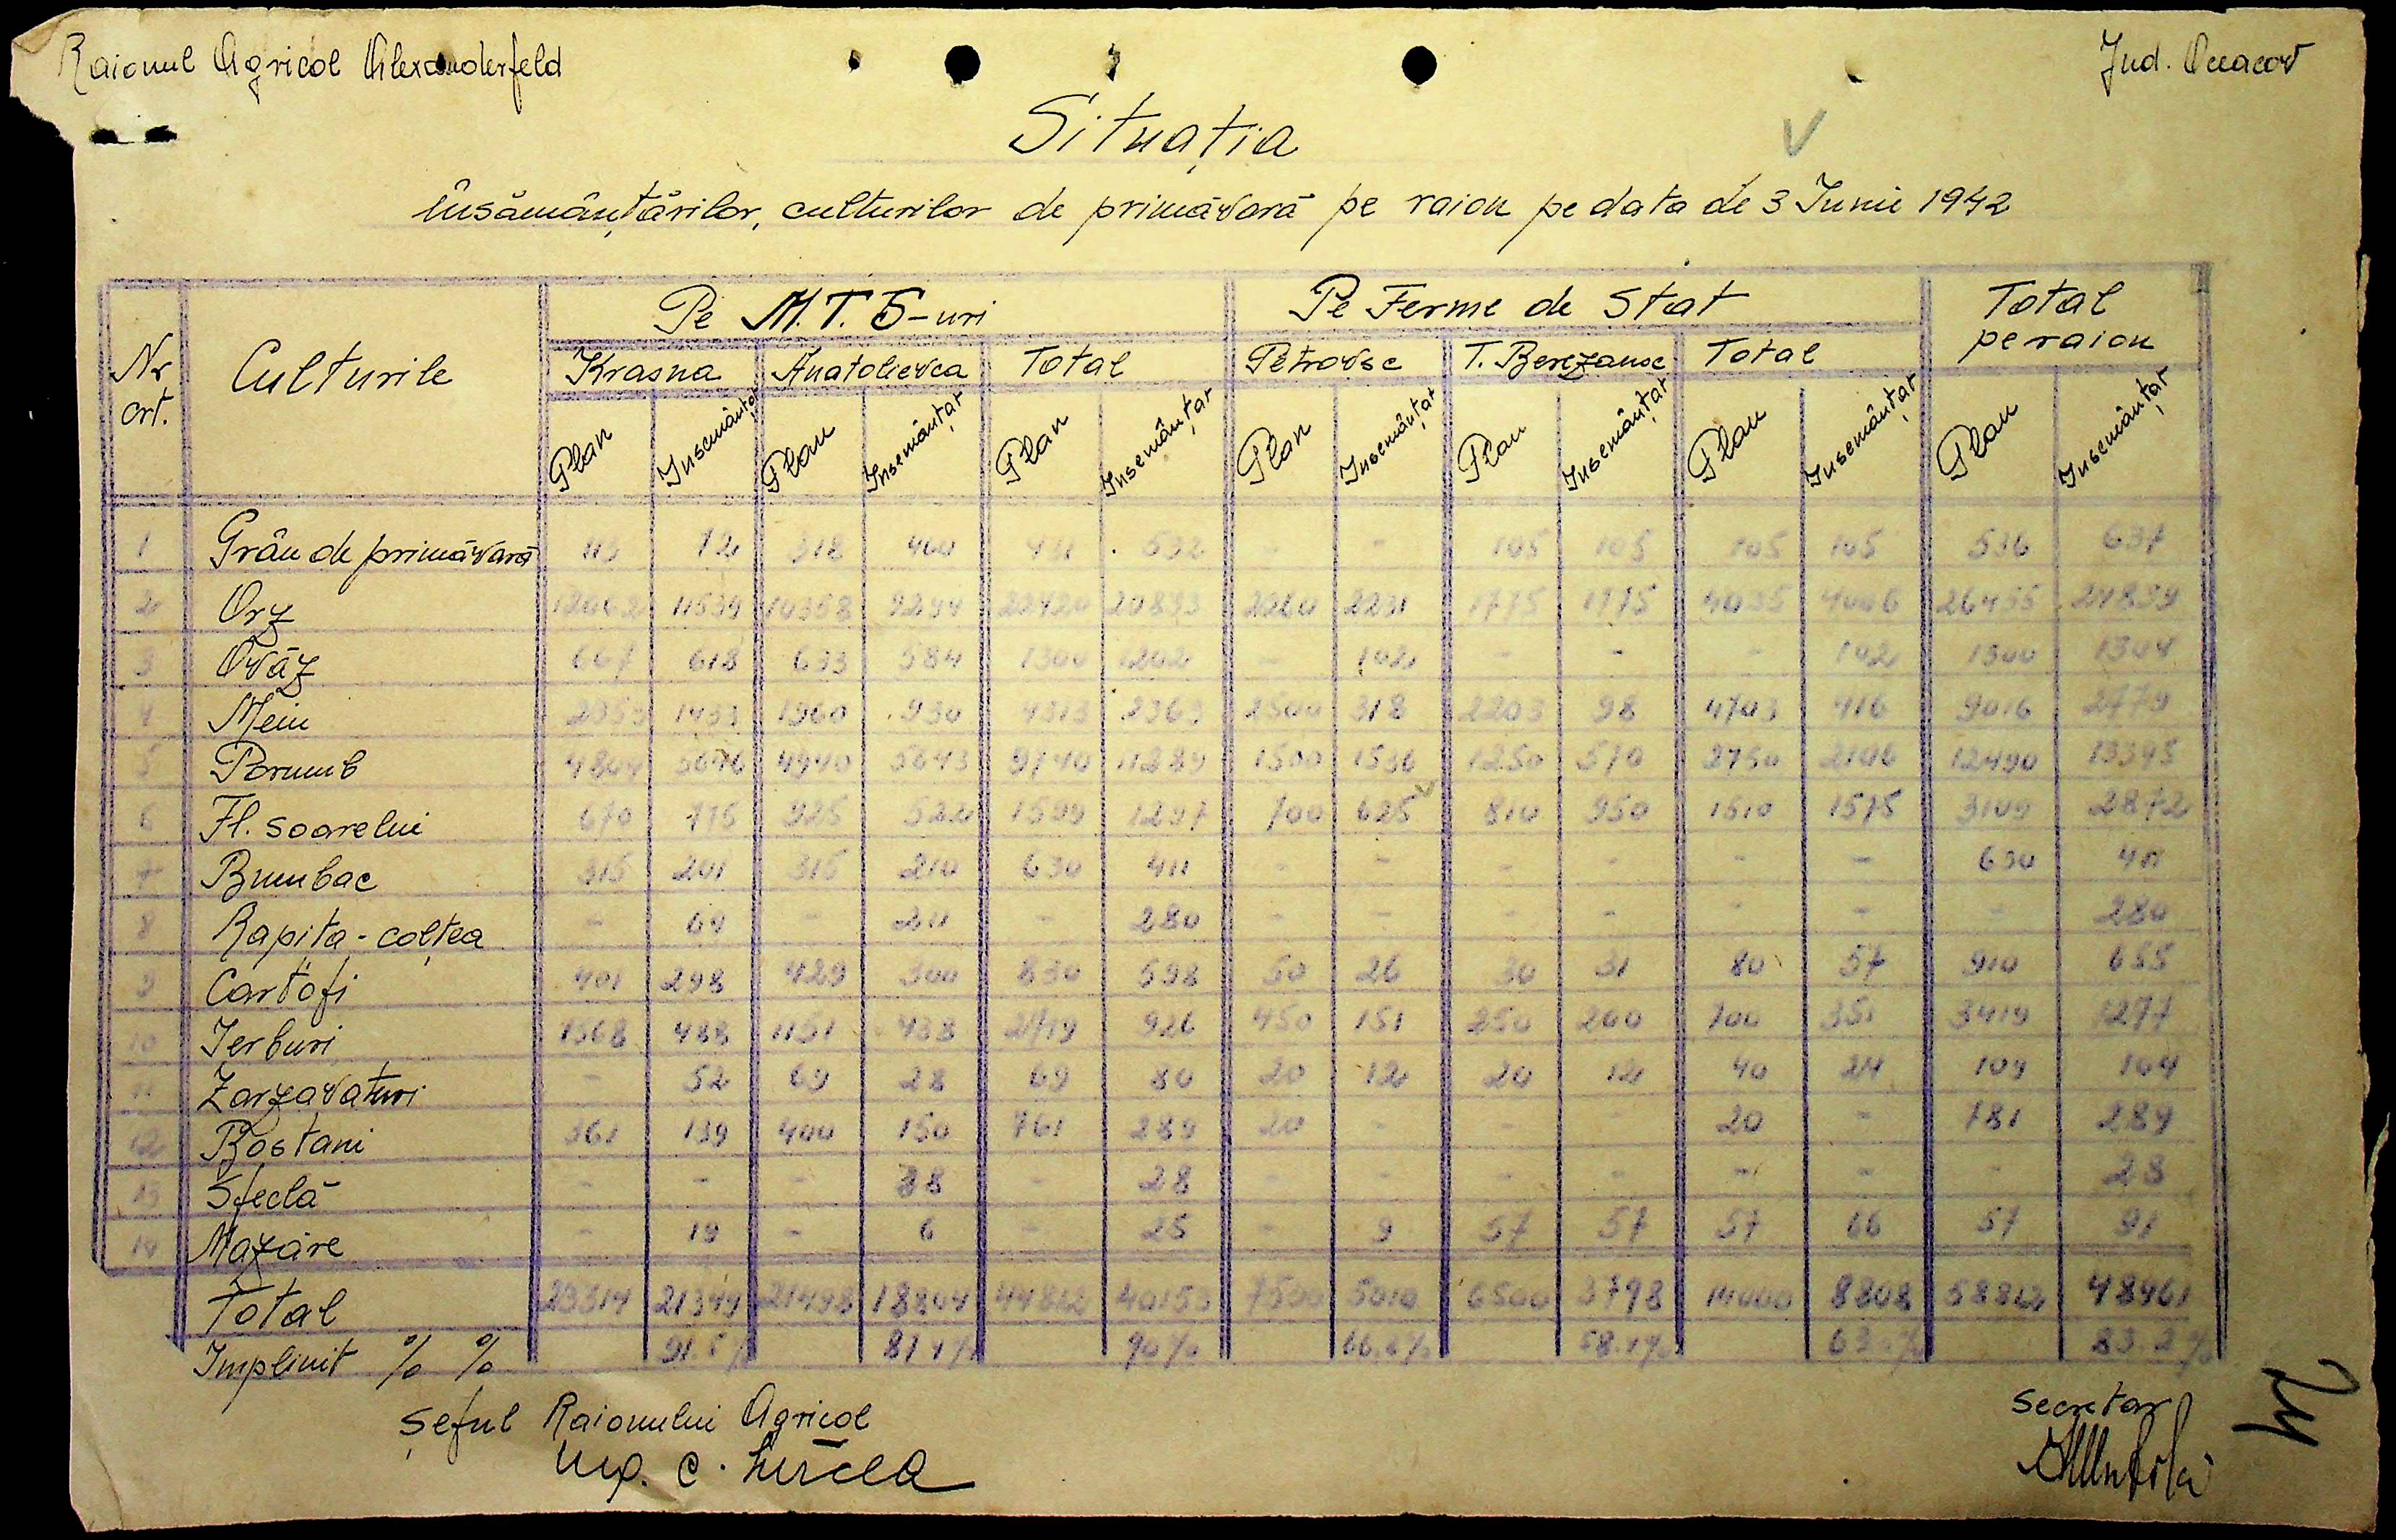 Raionul Agricol Alexanderfeld
Jud. Oceacov
Situația
însămânțărilor, culturilor de primăvară pe raion pe data de 3 Iunie 1942
Nr. crt. Culturile Pe M.T.S-uri Pe Ferme de Stat Total pe raion
Krasna Anatolievca Total Petrovsc T. Berezansc Total
Plan Insemânțat Plan Insemânțat Plan Insemânțat Plan Insemânțat Plan Insemânțat Plan Insemânțat Plan Insemânțat
1 Grâu de primăvară 113 72 318 460 431 532 - - 105 105 105 105 536 637
2 Orz 12062 11539 10358 9294 22420 20833 2260 2231 1775 1775 4035 4006 26455 24839
3 Ovăz 667 618 633 584 1300 1202 - 102 - - - 102 1300 1304
4 Mein 2353 1433 1960 930 4313 2363 2500 318 2203 98 4703 416 9016 2779
5 Porumb 4800 5646 4940 5643 9740 11289 1500 1536 1250 570 2750 2106 12490 13395
6 Fl. soarelui 670 775 925 522 1599 1297 700 625 810 950 1510 1575 3109 2872
7 Bumbac 315 201 315 210 630 411 - - - - - - 630 411
8 Rapita - colțea - 69 - 211 - 280 - - - - - - - 280
9 Cartofi 401 298 429 300 830 598 50 26 30 31 80 57 910 655
10 Ierburi 1568 488 1151 438 2719 926 450 151 250 200 700 351 3419 1277
11 Zarzavaturi - 52 69 28 69 80 20 12 20 12 40 24 109 104
12 Bostani 361 139 400 150 761 289 20 - - - 20 - 781 289
13 Sfeclă - - - 28 - 28 - - - - - - - 28
14 Mazăre - 19 - 6 - 25 - 9 57 57 57 66 57 91
Total 23314 21349 21498 18804 44812 40153 7500 5010 6500 3798 14000 8808 58812 48961
Implinit % % 90% 83.2%
Șeful Raionului Agricol
Ing. C. Mircea
Secretar